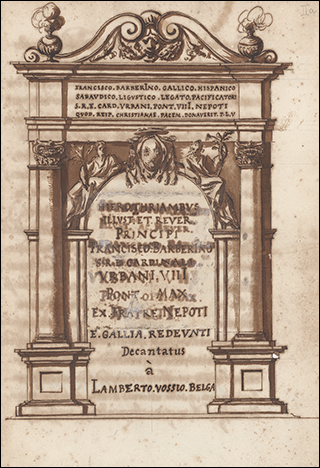 FRANCISCO. BARBERINO. GALLICO. HISPANICO
SABAUDICO. LIGUSTICO. LEGATO. PACIFICATORI
S. R. E. CARD. URBANI. PONT. VIII. NEPOTI
QUOD. REIP. CHRISTIANAE. PACEM. DONAVERIT.
HIEROTHRIAMBUS
ILLUST. ET. REVER.
PRINCIPI
FRANCISCO. BARBERINO
CARDINALI
VRBANI. VIII
PONT. MAX
EX. FRATRE. NEPOTI
E. GALLIA. REDEUNTI
Decantatus
à
LAMBERTO. VOSSIO. BELGA